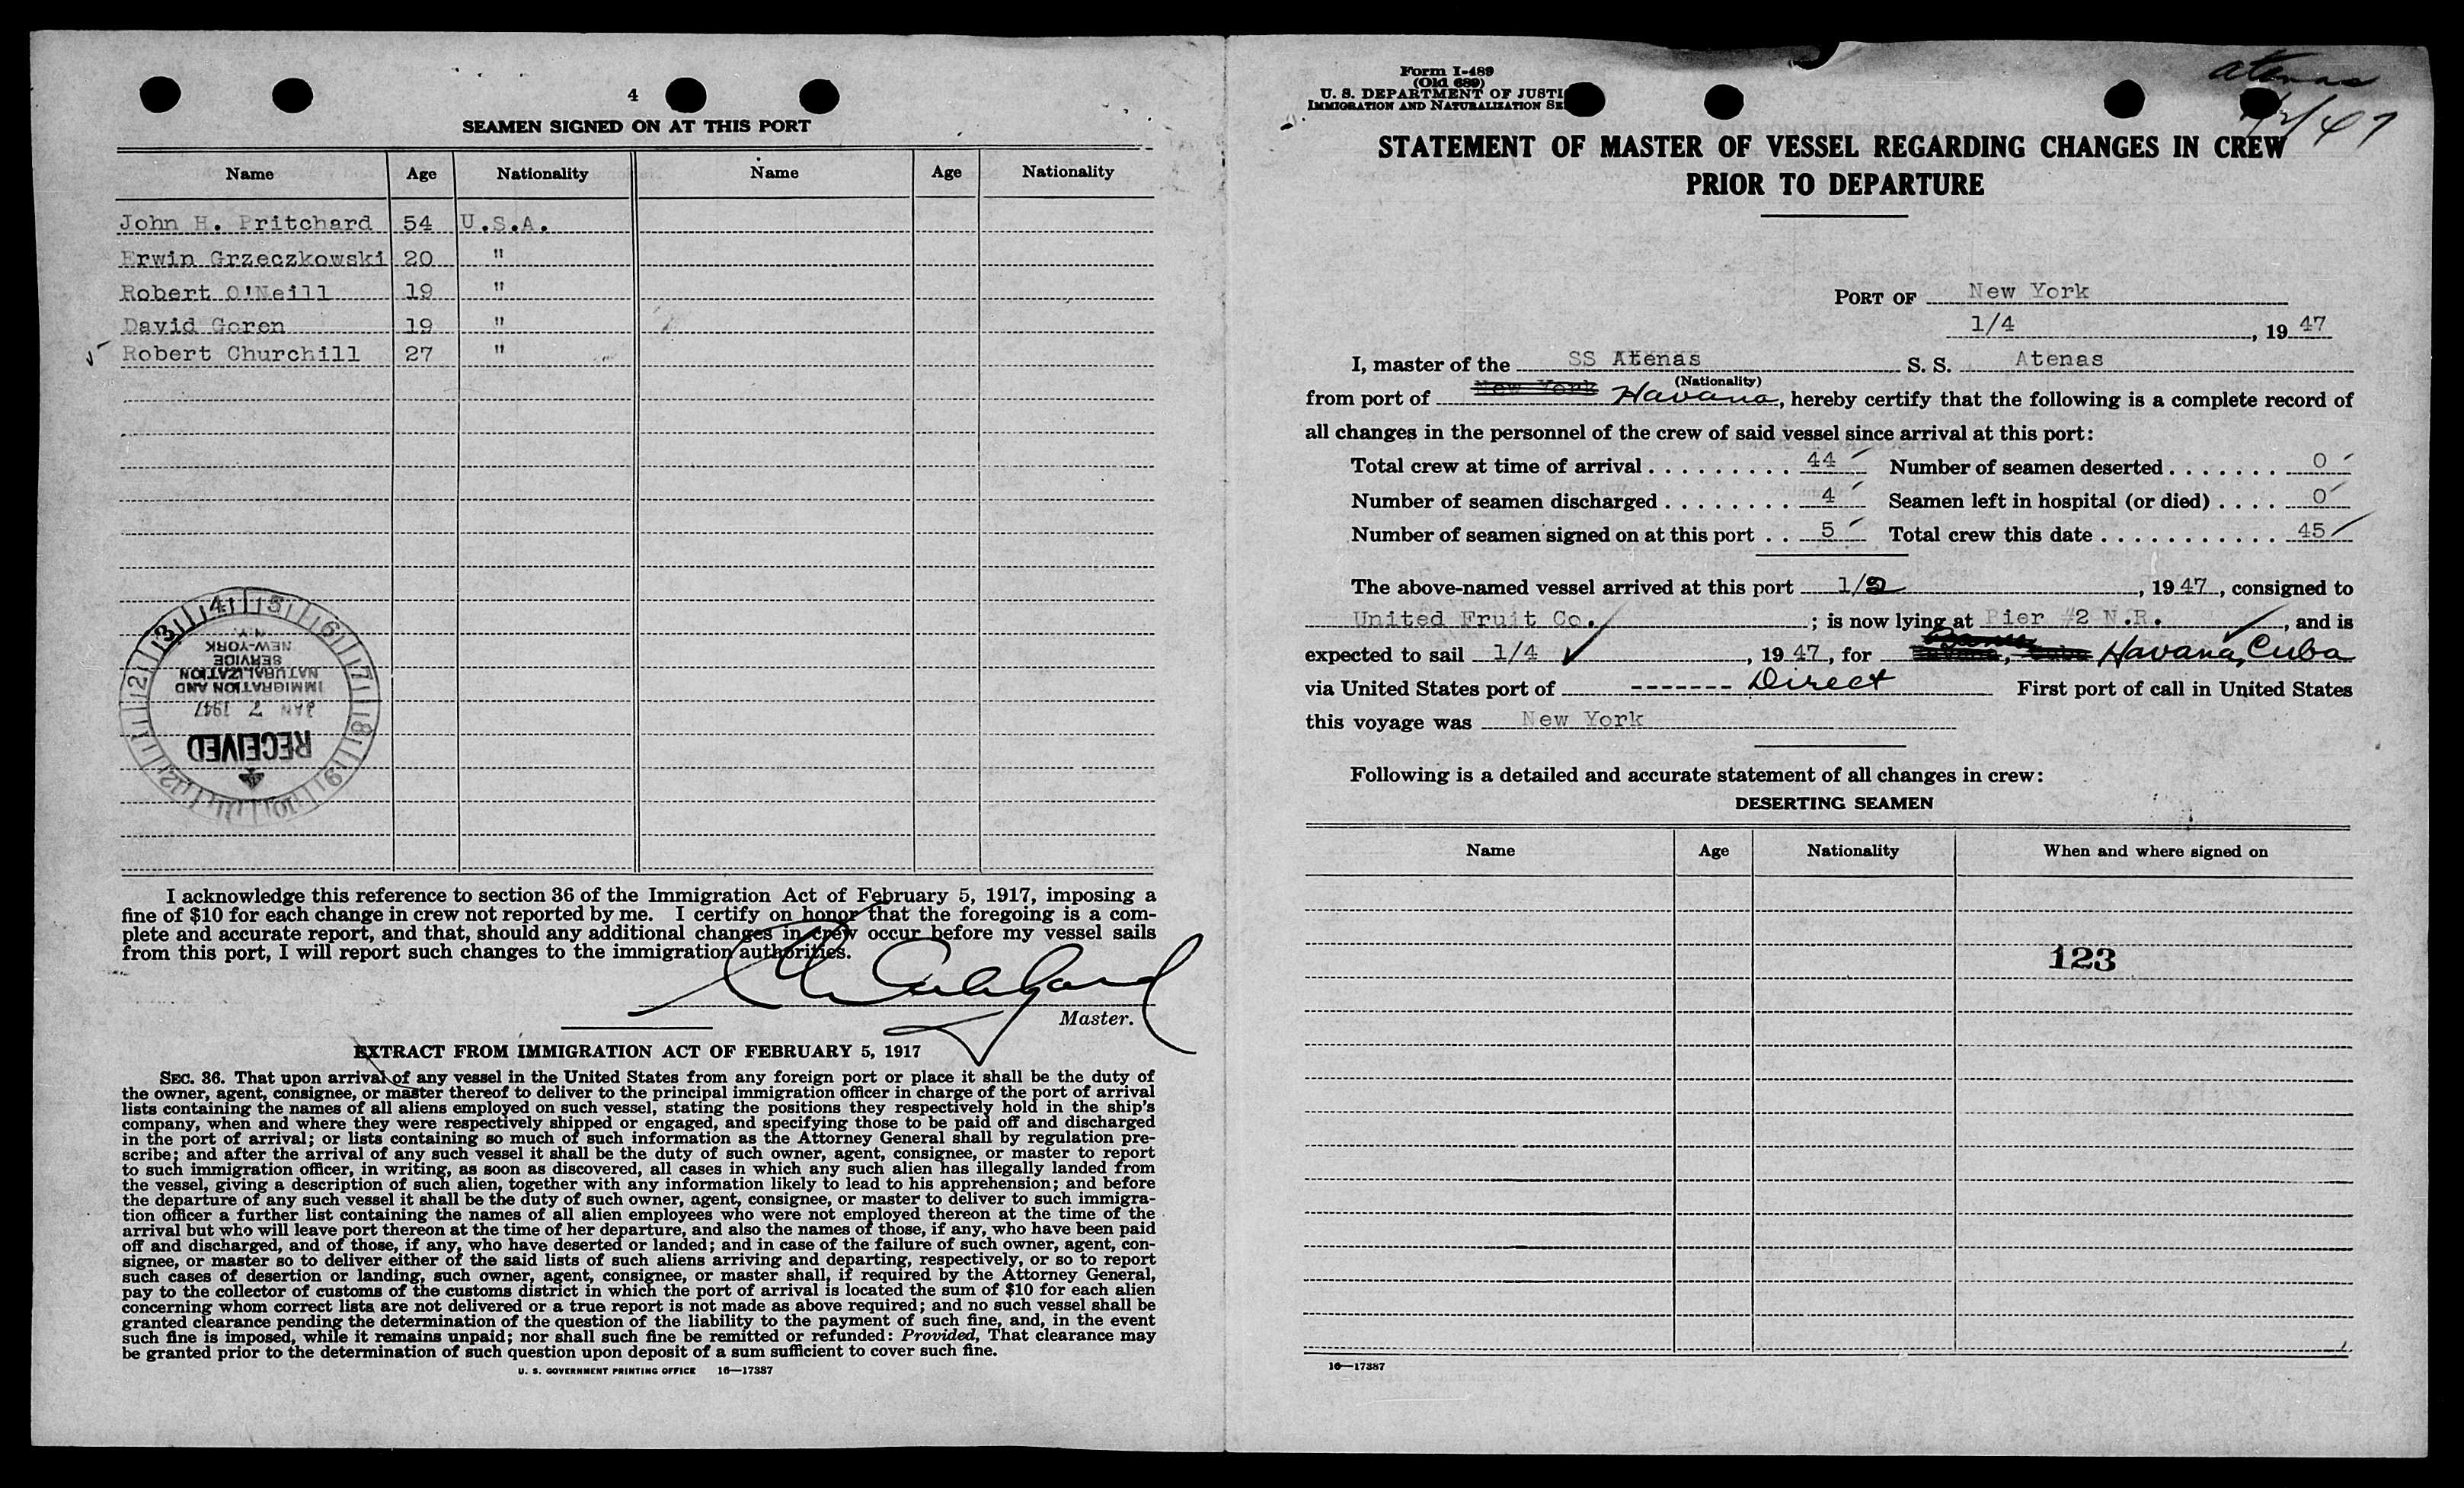 4
SEAMEN SIGNED ON AT THIS PORT
Name Age Nationality Name Age Nationality
John H. Pritchard 54 U.S.A.
Erwin Grzeczkowski 20 "
Robert O'Neill 19 "
David Goren 19 "
Robert Churchill 27 "
1 2 3 4 5 6 7 8 9 10 11 12
RECEIVED
JAN 7 1947
IMMIGRATION AND
NATURALIZATION
SERVICE
NEW-YORK
N.Y.
I acknowledge this reference to section 36 of the Immigration Act of February 5, 1917, imposing a
fine of $10 for each change in crew not reported by me. I certify on honor that the foregoing is a com-
plete and accurate report, and that, should any additional changes in crew occur before my vessel sails
from this port, I will report such changes to the immigration authorities.
Master.
EXTRACT FROM IMMIGRATION ACT OF FEBRUARY 5, 1917
SEC. 36. That upon arrival of any vessel in the United States from any foreign port or place it shall be the duty of
the owner, agent, consignee, or master thereof to deliver to the principal immigration officer in charge of the port of arrival
lists containing the names of all aliens employed on such vessel, stating the positions they respectively hold in the ship's
company, when and where they were respectively shipped or engaged, and specifying those to be paid off and discharged
in the port of arrival; or lists containing so much of such information as the Attorney General shall by regulation pre-
scribe; and after the arrival of any such vessel it shall be the duty of such owner, agent, consignee, or master to report
to such immigration officer, in writing, as soon as discovered, all cases in which any such alien has illegally landed from
the vessel, giving a description of such alien, together with any information likely to lead to his apprehension; and before
the departure of any such vessel it shall be the duty of such owner, agent, consignee, or master to deliver to such immigra-
tion officer a further list containing the names of all alien employees who were not employed thereon at the time of the
arrival but who will leave port thereon at the time of her departure, and also the names of those, if any, who have been paid
off and discharged, and of those, if any, who have deserted or landed; and in case of the failure of such owner, agent, con-
signee, or master so to deliver either of the said lists of such aliens arriving and departing, respectively, or so to report
such cases of desertion or landing, such owner, agent, consignee, or master shall, if required by the Attorney General,
pay to the collector of customs of the customs district in which the port of arrival is located the sum of $10 for each alien
concerning whom correct lists are not delivered or a true report is not made as above required; and no such vessel shall be
granted clearance pending the determination of the question of the liability to the payment of such fine, and, in the event
such fine is imposed, while it remains unpaid; nor shall such fine be remitted or refunded: Provided, That clearance may
be granted prior to the determination of such question upon deposit of a sum sufficient to cover such fine.
U. S. GOVERNMENT PRINTING OFFICE 16—17387
Form I-489
(Old 689)
U. S. DEPARTMENT OF JUSTI
IMMIGRATION AND NATURALIZATION SE
Atenas
/2/47
STATEMENT OF MASTER OF VESSEL REGARDING CHANGES IN CREW
PRIOR TO DEPARTURE
PORT OF New York
1/4, 19 47
I, master of the SS Atenas S. S. Atenas
(Nationality)
from port of New York Havana, hereby certify that the following is a complete record of
all changes in the personnel of the crew of said vessel since arrival at this port:
Total crew at time of arrival . . . . . . . . . 44 Number of seamen deserted . . . . . . . 0
Number of seamen discharged . . . . . . . . 4 Seamen left in hospital (or died) . . . . 0
Number of seamen signed on at this port . . 5 Total crew this date . . . . . . . . . . . . 45
The above-named vessel arrived at this port 1/2, 19 47, consigned to
United Fruit Co. ; is now lying at Pier #2 N.R., and is
expected to sail 1/4, 19 47, for Havana, Cuba
via United States port of ------- Direct First port of call in United States
this voyage was New York
Following is a detailed and accurate statement of all changes in crew:
DESERTING SEAMEN
Name Age Nationality When and where signed on
123
16—17387